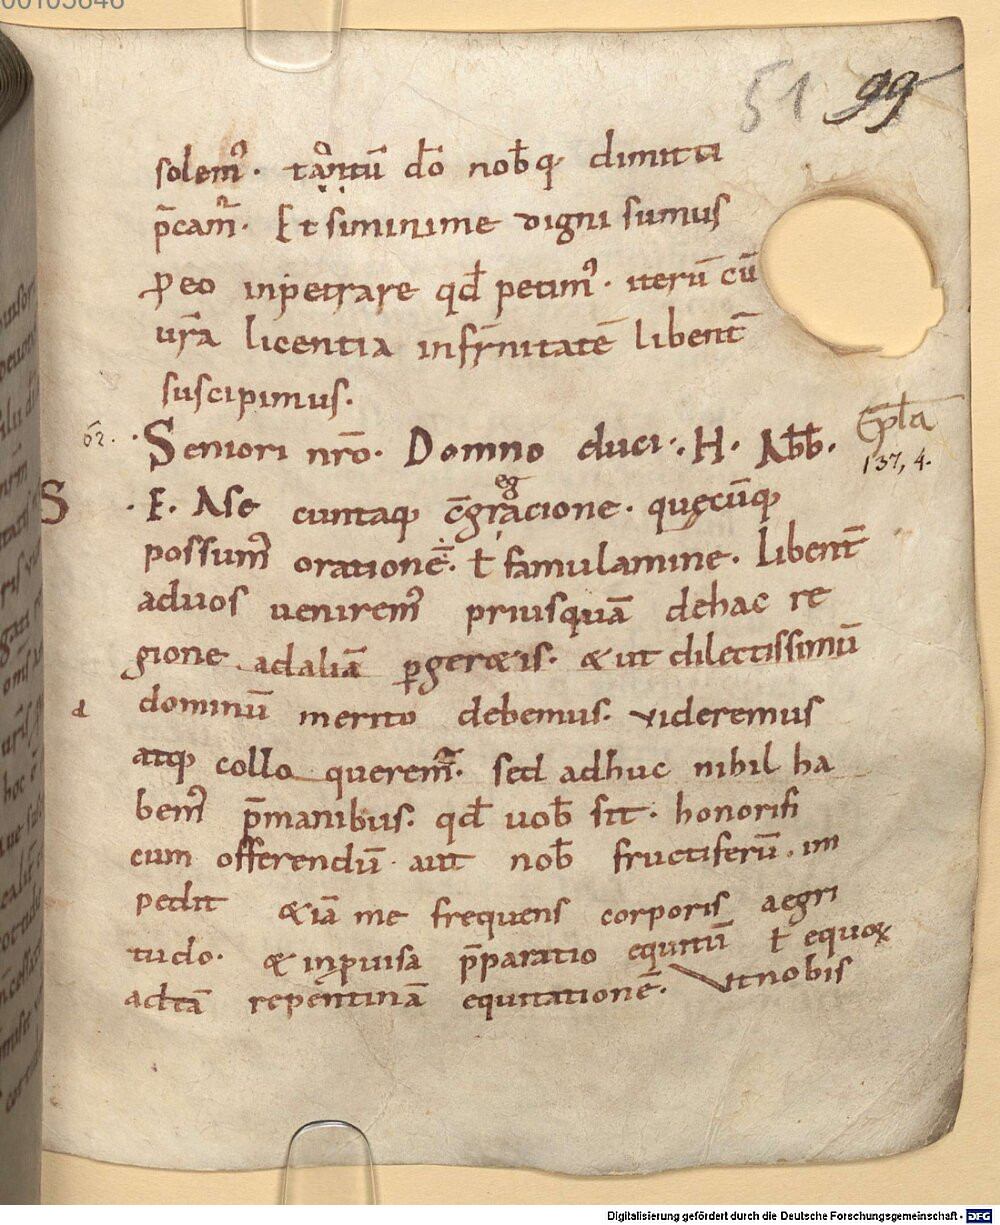 00105646
51 99
solem᾿. tantū dō nob̄q; dimitti
p̄cam᾿. Et siminime digni sumus
p eo inpetrare qd̄ petim᾿. iterū cū
ur̄a licentia infirmitatē libent̄
suscipimus.
62. Seniori nr̄o. Domno duci. H. Abb̄.
Epl̄a
137, 4.
S. E. Ase cuntaq; c̄gregacione. quęcūq;
possum᾿ orationē. ł famulamine. Libent̄
aduos uenirem᾿ priusquā dehac re
gione adaliā ꝑgeretis. & ut dilectissimū
dominū merito debemus. videremus
atq; collo querem᾿. sed adhuc nihil ha
bem᾿ p̄manibus. qd̄ uob̄ sit. honorifi
cum offerendū. aut nob̄ fructiferū. im
pedit &iā me frequens corporis aegri
tudo. & inpuisa p̄paratio equitū ł equoꝝ
adtā repentinā equitationē. Vtnobis
Digitalisierung gefördert durch die Deutsche Forschungsgemeinschaft - DFG